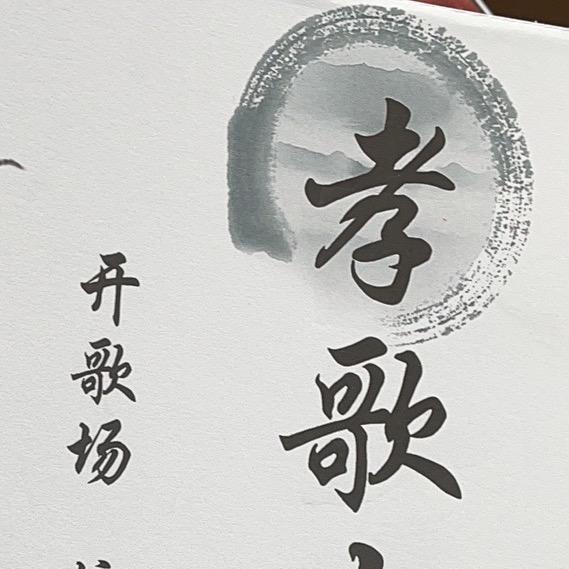 孝歌
开歌场